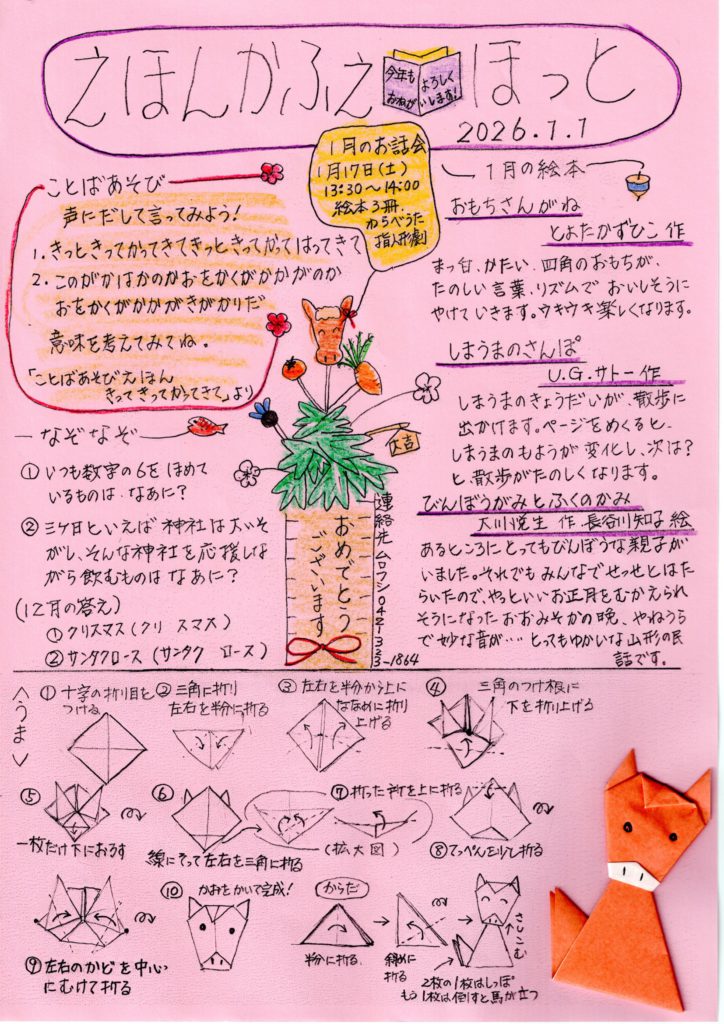 えほんかふぇ
今年も
おねが
よろしく
いします!
ほっと
2026.1.1
1月のお話会
1月17日(土)
13:30~14:00
絵本3冊
わらべうた
指人形劇
ことばあそび
声にだして言ってみよう!
1. きっときってかってきてきっときってかってはってきて
2. このがかはかのかおをかくがかかがのか
おをかくがかかがきがかりだ
意味を考えてみてね。
「ことばあそびえほん
きってきってかってきて」より
なぞなぞ
① いつも数字の6をほめて
いるものは なあに?
② 三ケ日といえば神社は大いそ
がし、そんな神社を応援しな
がら飲むものは なあに?
(12月の答え)
①クリスマス(クリ スマス)
②サンタクロース(サンタク ロース)
大吉
おめでとう
ございます
連絡先ムロフシ042-323-1864
1月の絵本
おもちさんがね
とよたかずひこ 作
まっ白、かたい、四角のおもちが、
たのしい言葉、リズムで おいしそうに
やけていきます。ウキウキ楽しくなります。
しまうまのさんぽ
U.G.サトー 作
しまうまのきょうだいが、散歩に
出かけます。ページをめくると、
しまうまのもようが変化し、次は?
と、散歩がたのしくなります。
びんぼうがみとふくのかみ
大川悦生 作 長谷川知子 絵
あるところにとってもびんぼうな親子が
いました。それでも みんなでせっせとはた
らいたので、やっといいお正月をむかえられ
そうになった おおみそかの晩、やねうら
で妙な音が‥‥ とってもゆかいな 山形の民
話です。
<うま>
① 十字の折り目を
つける
② 三角に折り
左右を半分に折る
③ 左右を半分から上に
ななめに折り
上げる
④ 三角のつけ根に
下を折り上げる
⑤
一枚だけ下におろす
⑥
線にそって左右を三角に折る
⑦ 折った所を上に折る
(拡大図)
⑧てっぺんを少し折る
⑨左右のかどを中心
にむけて折る
⑩ かおをかいて完成!
からだ
半分に折る
斜めに
折る
さしこむ
2枚の1枚はしっぽ
もう1枚は倒すと馬が立つ